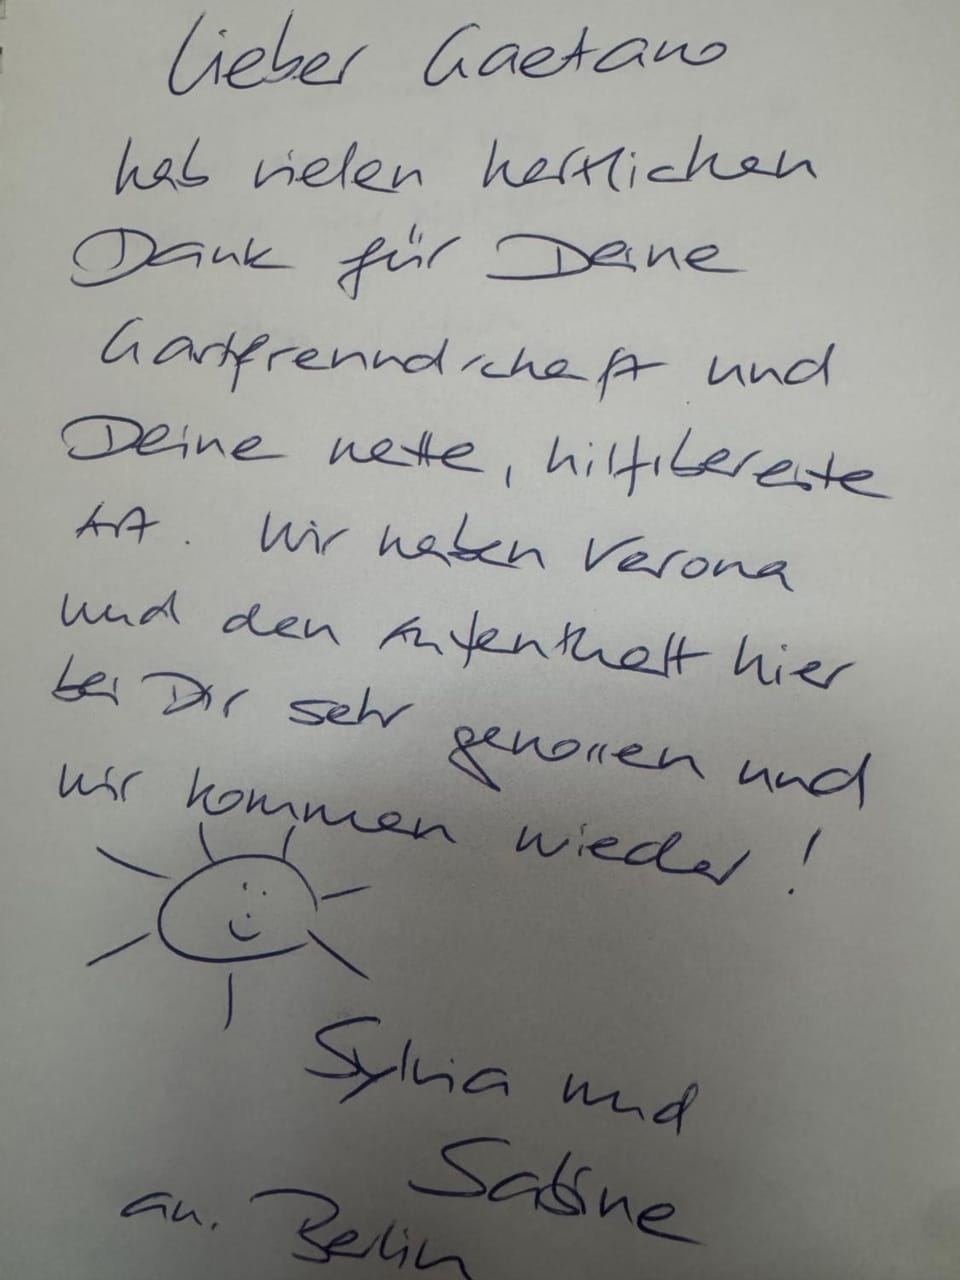 Lieber Gaetano
hab vielen herzlichen
Dank für Deine
Gastfreundschaft und
Deine nette, hilfsbereite
Art. Wir haben Verona
und den Aufenthalt hier
bei Dir sehr genossen und
wir kommen wieder!
Sylvia und
Sabine
aus Berlin